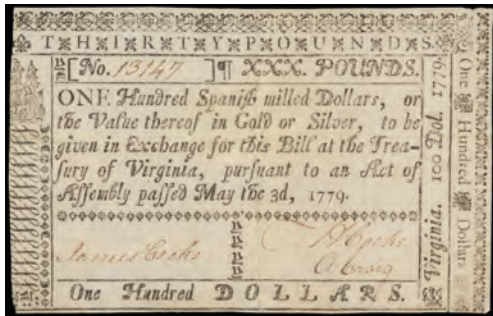 THIRTY POUNDS.
[No. 13147 ]¶ XXX. POUNDS.
ONE Hundred Spanish milled Dollars, or
the Value thereof in Gold or Silver, to be
given in Exchange for this Bill at the Trea-
sury of Virginia, pursuant to an Act of
Assembly passed May the 3d, 1779.
James Cocke
A Craig
One Hundred DOLLARS.
Virginia. 100 Dol. 1779.
One Hundred Dollars